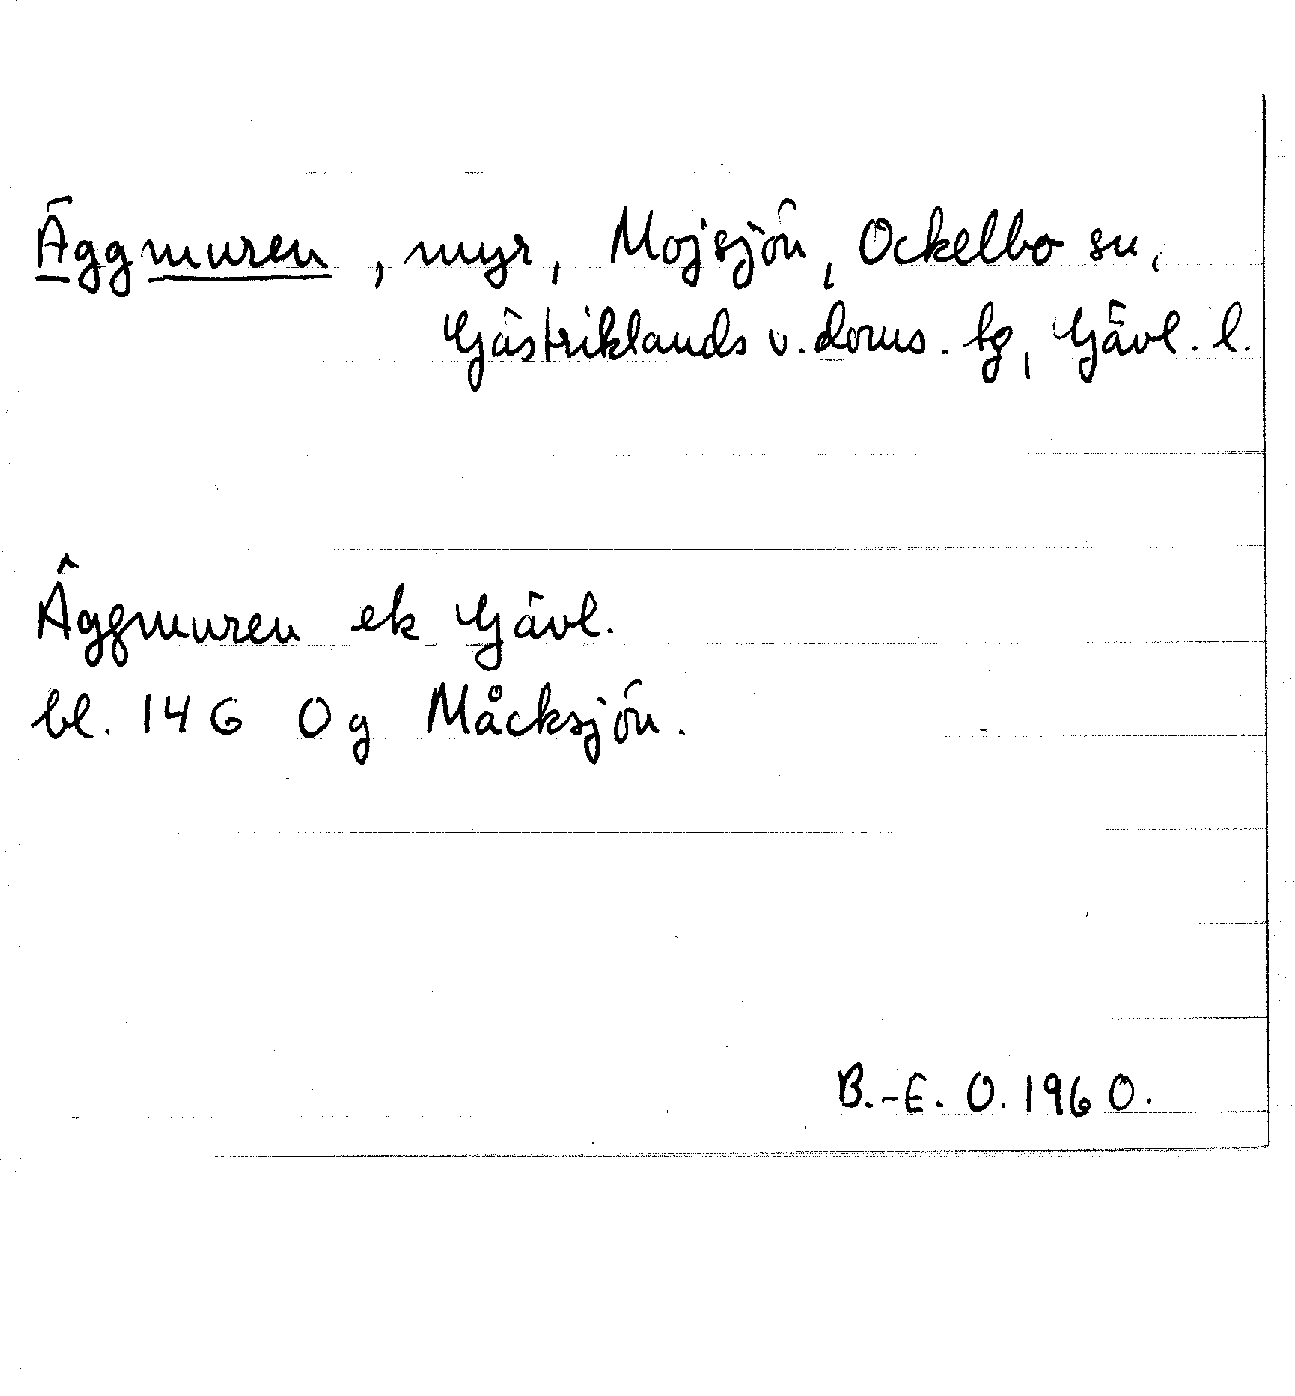 Äggmuren, myr, Mojsjön, Ockelbo sn,
Gästriklands v. doms. tg, Gävl. l.
Äggmuren ek Gävl.
bl. 146 Og Måcksjön.
B.-E. O. 1960.